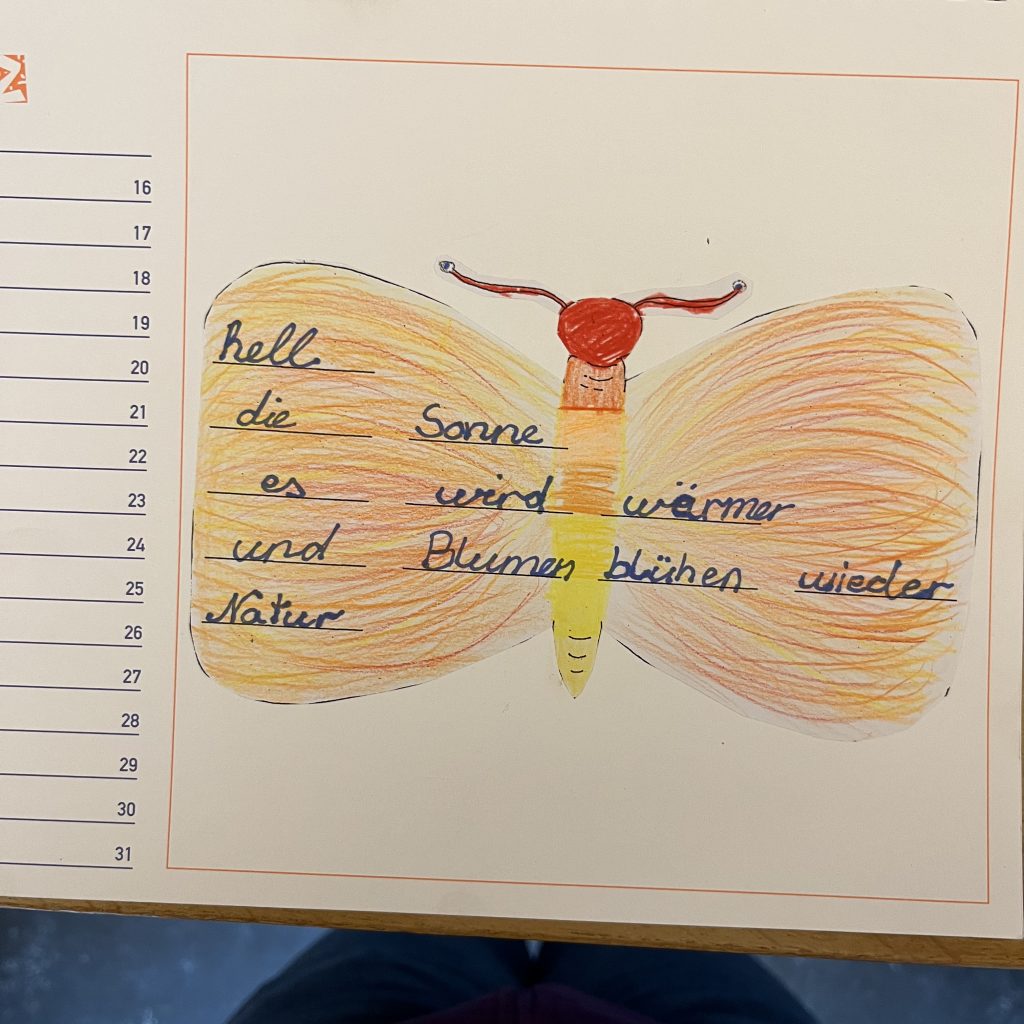 Z
16
17
18
19
20
21
22
23
24
25
26
27
28
29
30
31
hell
die Sonne
es wird wärmer
und Blumen blühen wieder
Natur